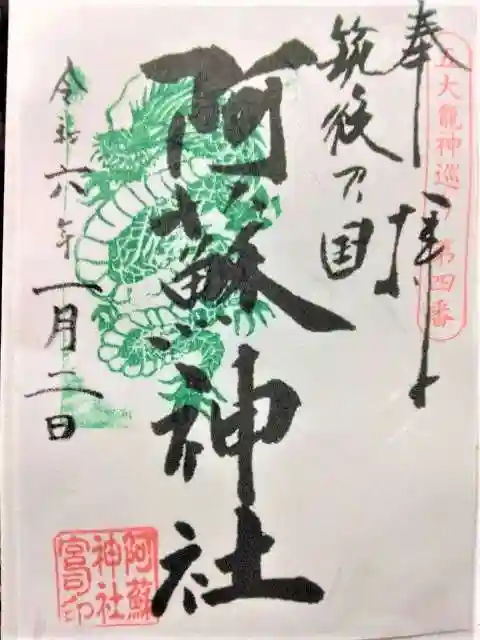 五大龍神巡り第四番
奉拝
筑後乃国
阿蘇神社
令和六年一月二日
阿蘇
神社
宮司印